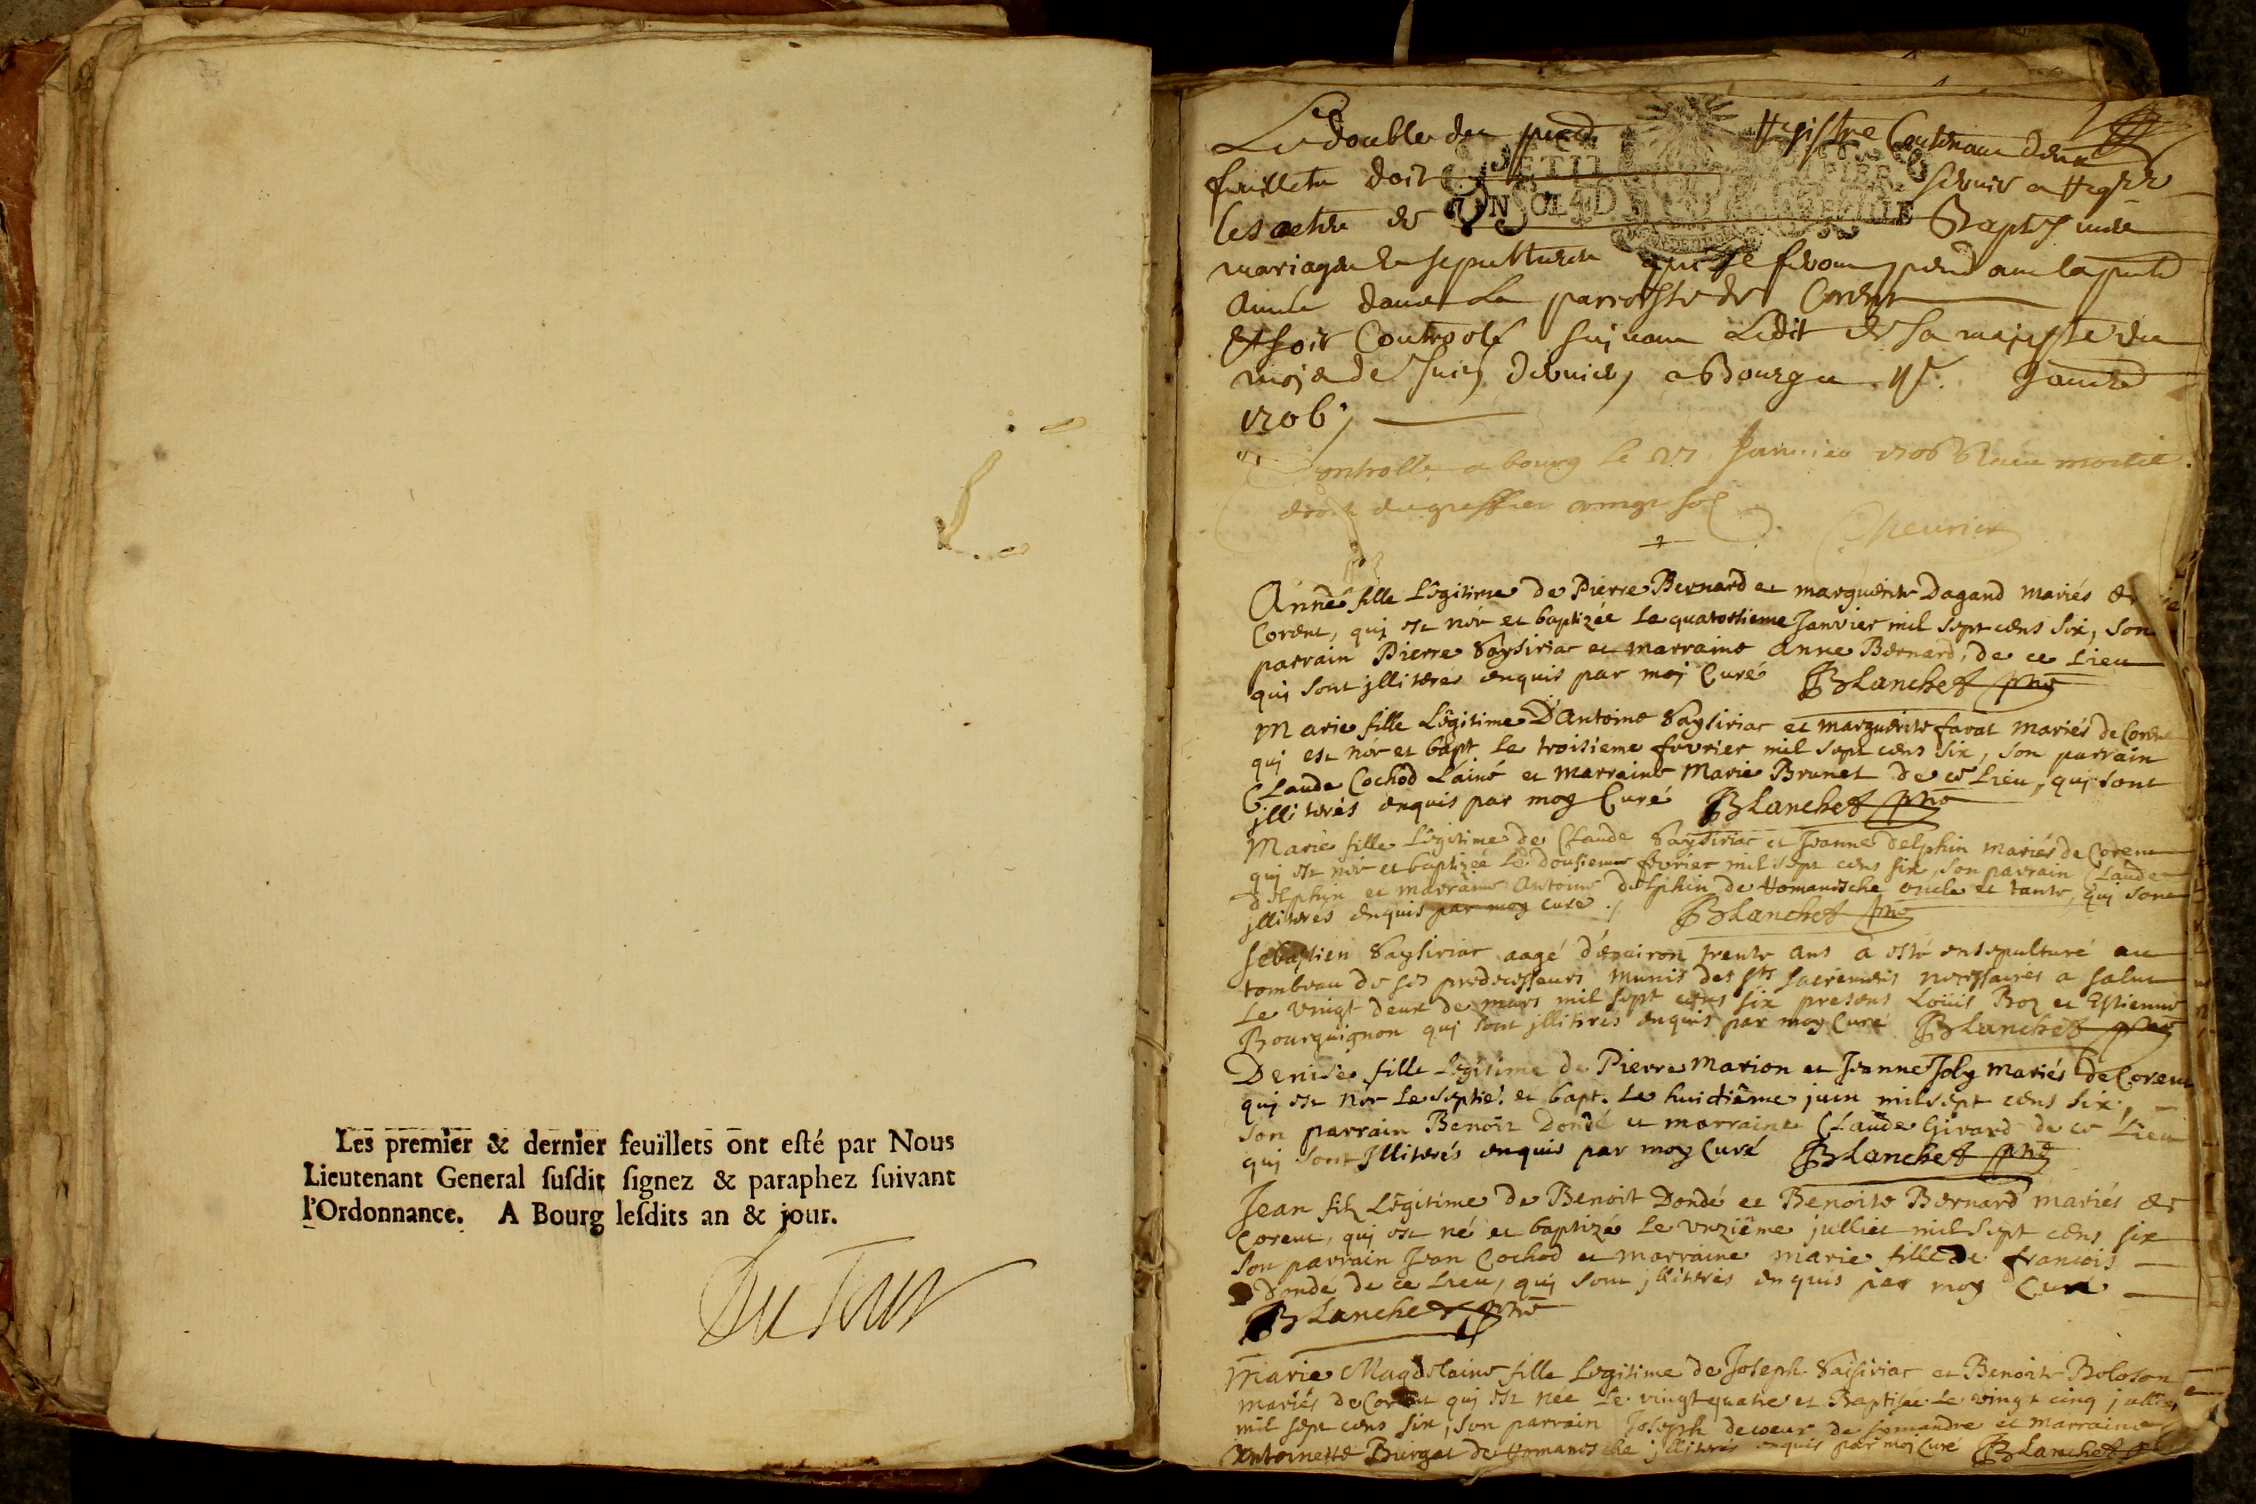 Les premier & dernier feuïllets ont esté par Nous
Lieutenant General susdit signez & paraphez suivant
l'Ordonnance. A Bourg lesdits an & jour.
Du Tour
Le double du Registre Contenant deux
feuillets doit servir a
les actes de Baptesmes
mariages et sepultures qui se feront pendant la
année dans la parroisse de Corent
Et soit Controolé suivant Ledit de sa majesté du
mois de dernier, a Bourg ce
1706
Controlle a bourg le janvier 1706
droit du greffier vingt sol
PETIT PAPIER
UN SOL 4 D LA FEUILLE
Anne fille Légitime de Pierre Bernard et marguerite Dagand mariés de
Corent, qui est née et baptizée le quatorsieme Janvier mil sept cens six, son
parrain Pierre Saysiriac et marraine anne Bernard, de ce Lieu
qui sont jlliteres enquis par moj Curé Blanchet
Marie fille Légitime D'antoine Saysiriac et marguerite favat mariés de Corent
qui est née et bapt le troisieme fevrier mil sept cens six, son parrain
Claude Cochod L'ainé et marraine Marie Brunet de ce Lieu, qui sont
jlliterés enquis par moy Curé Blanchet
Marie fille Légitime de Claude Saysiriac et Jeanne delphin mariés de Corent
qui est née et baptizée le dousieme fevrier mil sept cens six, son parrain Claude
delphin et marraine Antoine delphin de Romanesche oncle et tante, qui sont
jlliterés enquis par moy curé Blanchet
Sebastien Saysiriac aagé d'environ trente ans a esté ensepulturé au
tombeau de ses predecesseurs munis des sts sacremens necessaires a salut
Le vingt deux de mars mil sept cens six presens Loüis Boz et Estienne
Bourguignon qui sont jlliterés enquis par moy Curé Blanchet
Denise fille Légitime de Pierre Marion et Jeanne Joly mariés de Corent
qui est née le septie. et bapt. le huictiême juin mil sept cens six,
son parrain Benoit Dondé et marraine Claude Girard de ce Lieu
qui sont Jlliterés enquis par moy Curé Blanchet
Jean filz Légitime de Benoist Dondé et Benoite Bernard mariés de
Corent, qui est né et baptizé le unziême julliet mil sept cens six
son parrain Jean Cochod et marraine marie fille de francois
Dondé de ce Lieu, qui sont jlliterés enquis par moy Curé
Blanchet
Marie Magdelaine fille Legitime de Joseph Saisiriac et Benoite Boloson
mariés de Corent qui est née le vingt quatre et Baptisée le vingt cinq julliet
mil sept cens six, son parrain Joseph decoeur de simandre et marraine
Antoinette Burget de Romanesche jlliterés enquis par moj Curé Blanchet